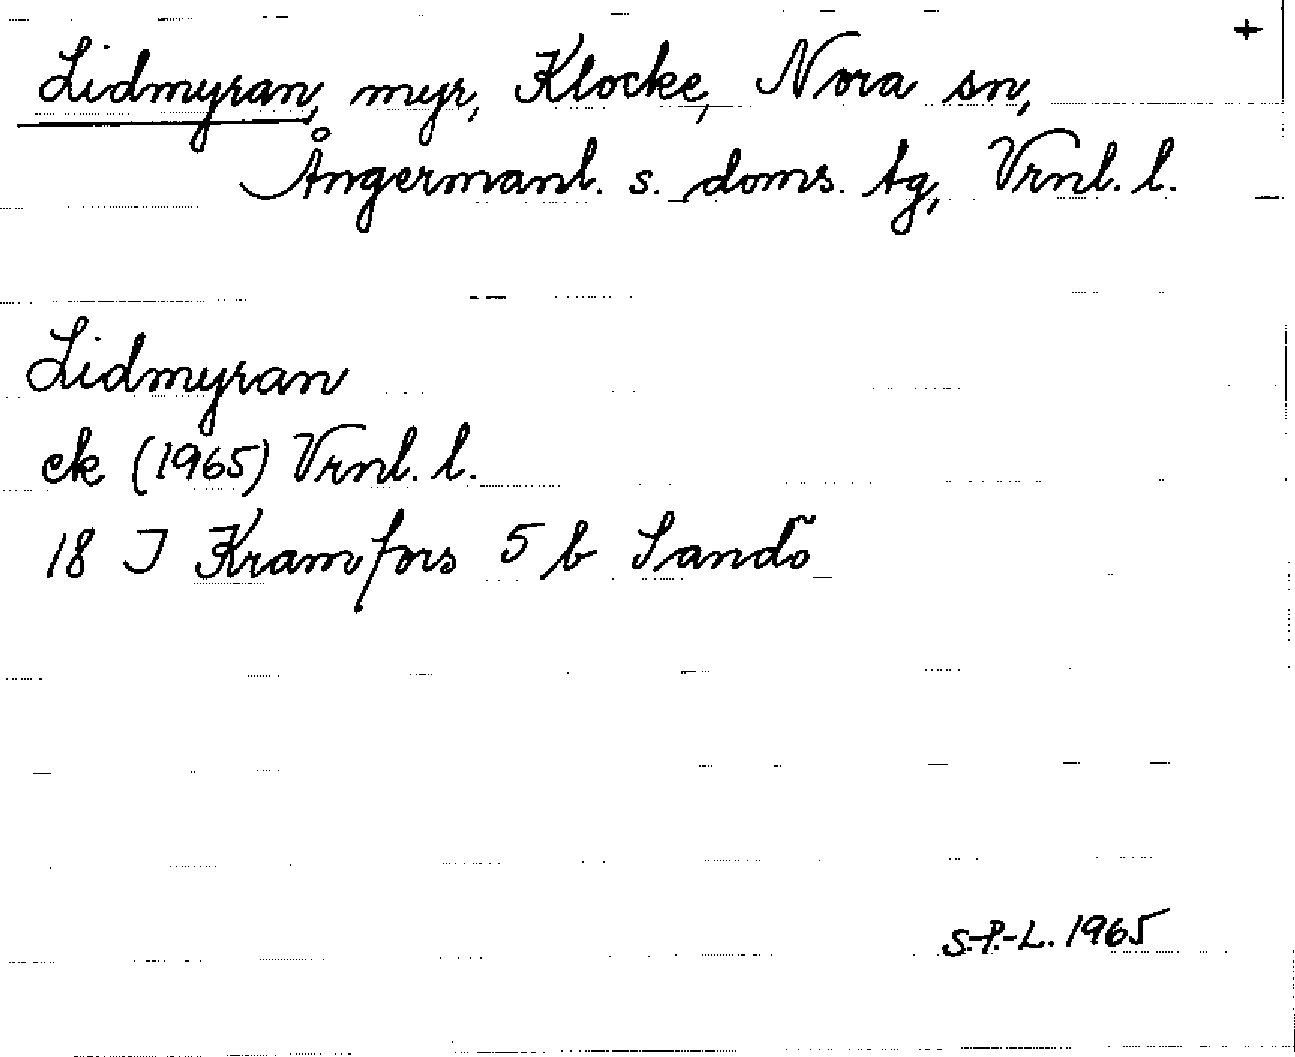 +
Lidmyran, myr, Klocke, Nora sn,
Ångermanl. s. doms. tg, Vrnl. l.
Lidmyran
ek (1965) Vrnl. l.
18 J Kramfors 5 b Sandö
S.-P.-L. 1965